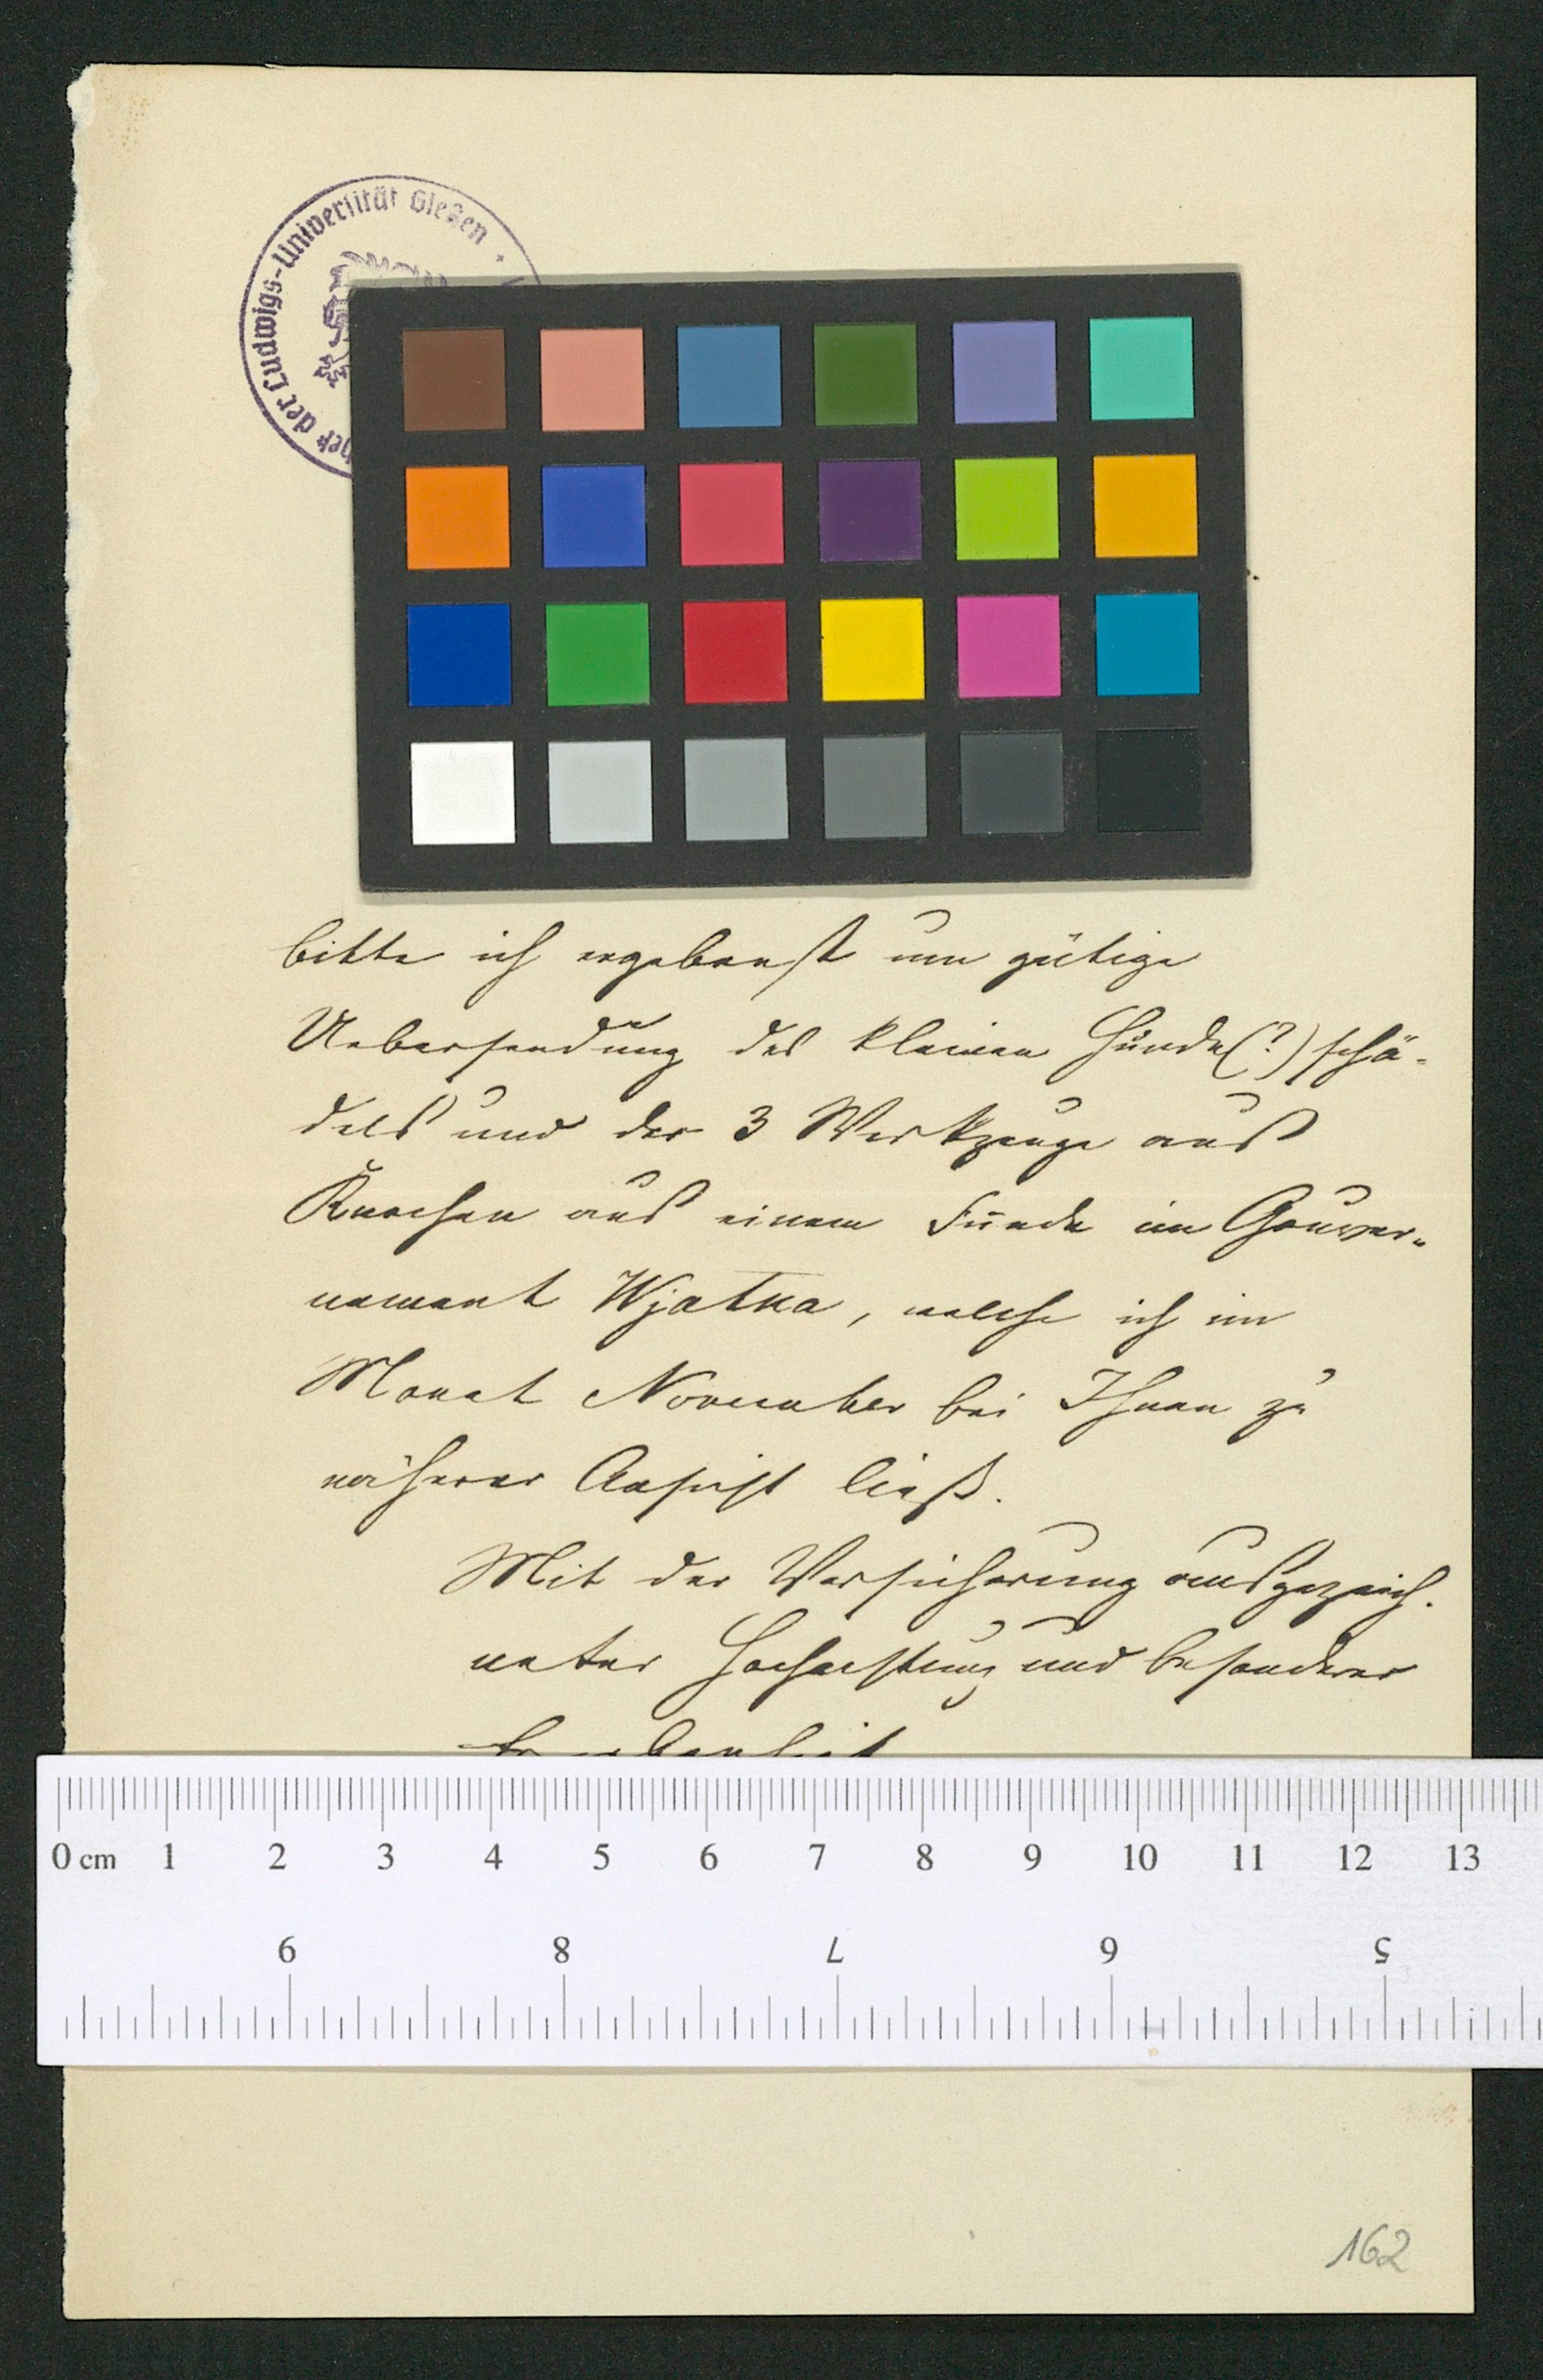 der Ludwigs-Universität Gießen
bitte ich ergebenst um gütige
Uebersendung des kleinen Hunde(?)schä-
dels und der 3 Werkzeuge aus
Knochen aus einem Funde im Gouver-
nement Wjatka, welche ich im
Monat November bei Ihnen zu
näherer Ansicht ließ.
Mit der Versicherung ausgezeich-
neter Hochachtung und besonderer
0 cm 1 2 3 4 5 6 7 8 9 10 11 12 13
9 8 7 6 5
162